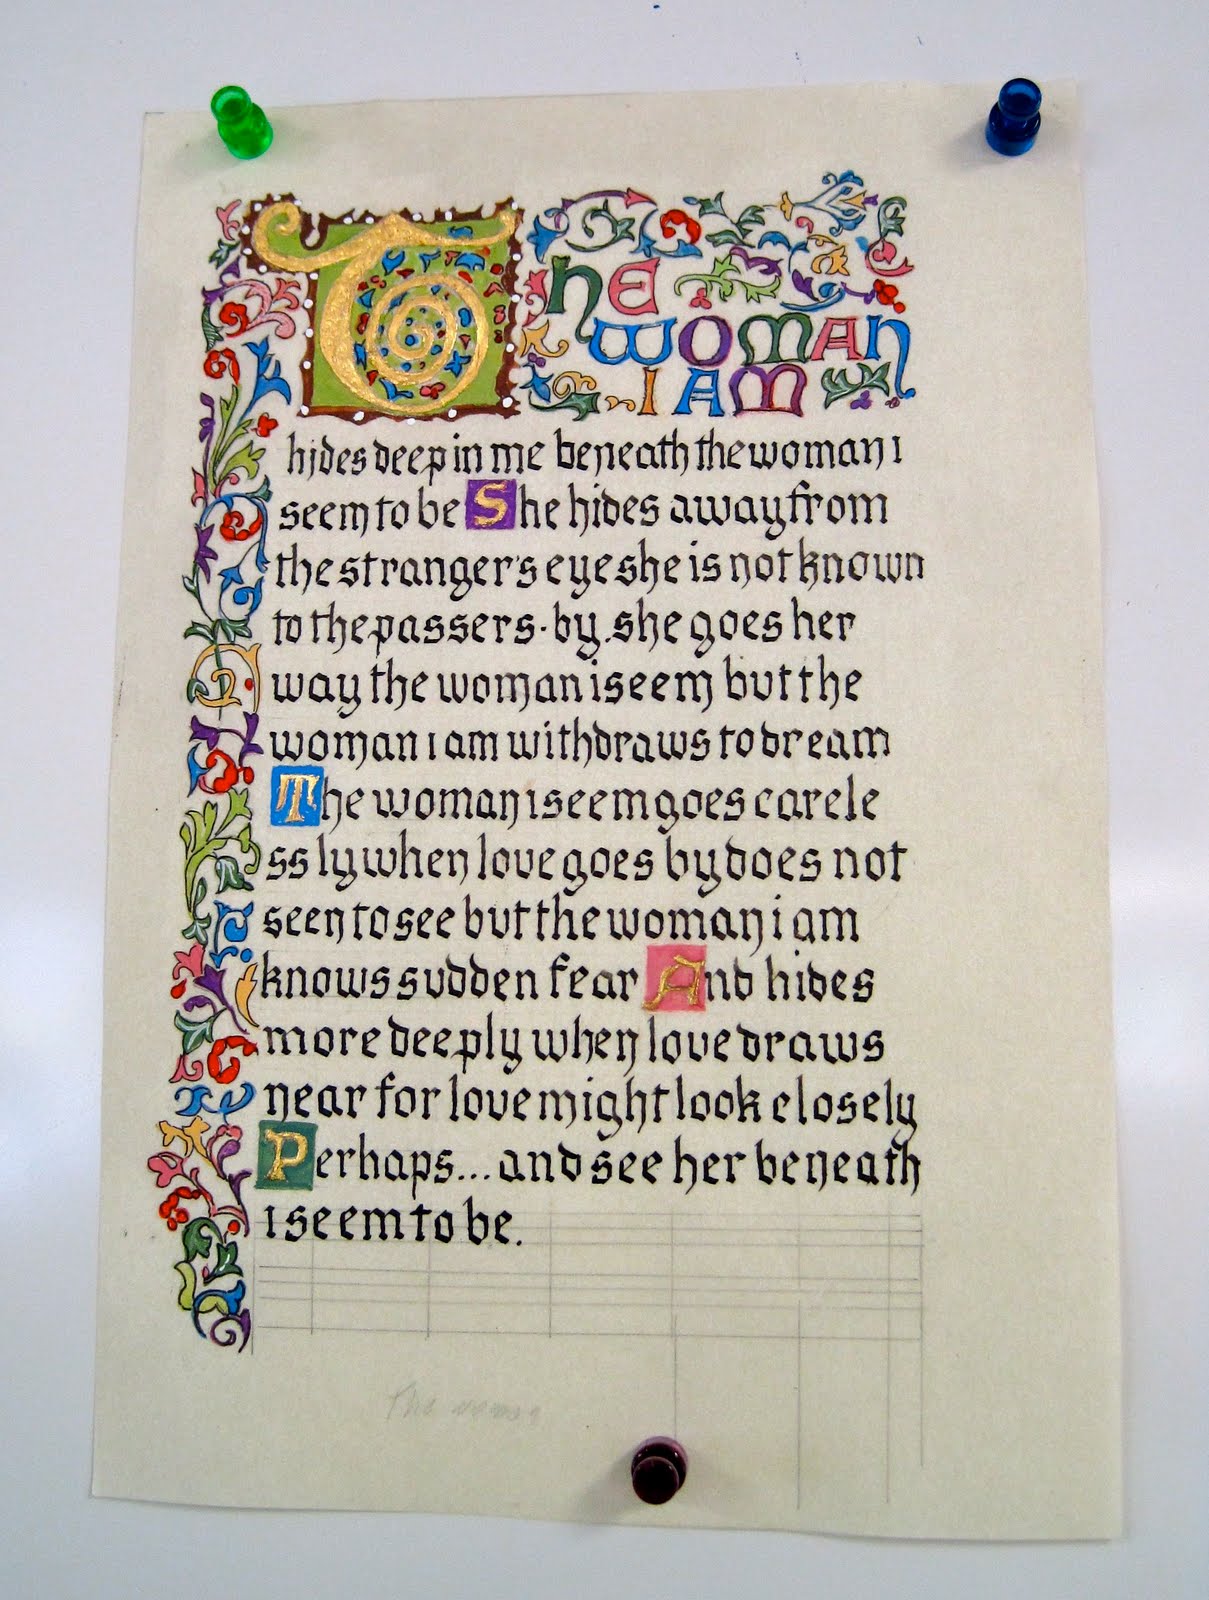 THE
WOMAN
I AM
hides deep in me beneath the woman i
seem to be She hides away from
the stranger's eye she is not known
to the passers-by. she goes her
way the woman i seem but the
woman i am withdraws to dream
The woman i seem goes carele
ssly when love goes by does not
seen to see but the woman i am
knows sudden fear And hides
more deeply when love draws
near for love might look closely
Perhaps... and see her beneath
i seem to be.
The woman